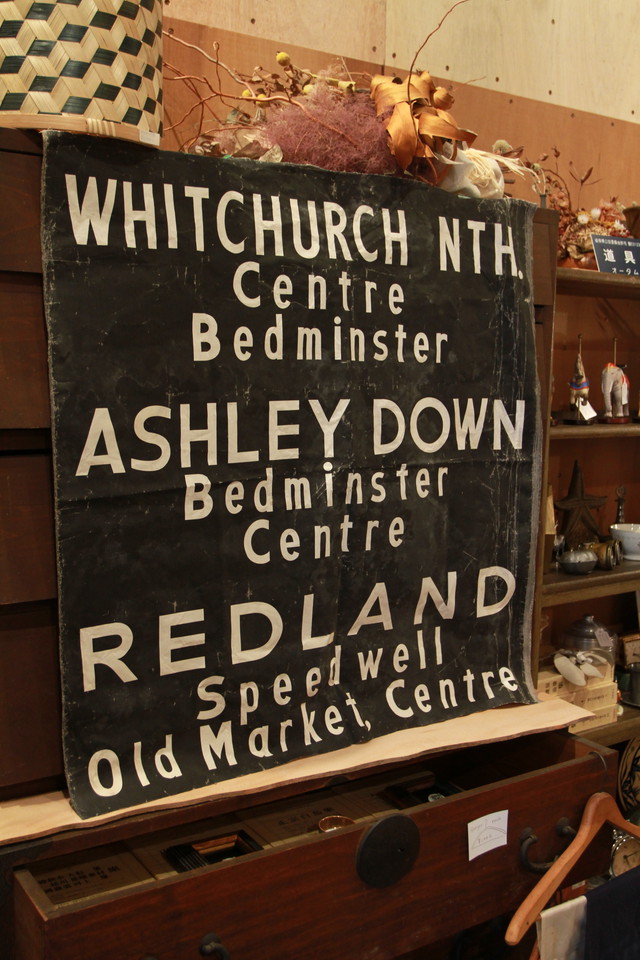 WHITCHURCH NTH.
Centre
Bedminster
ASHLEY DOWN
Bedminster
Centre
REDLAND
Speedwell
Old Market, Centre
道具